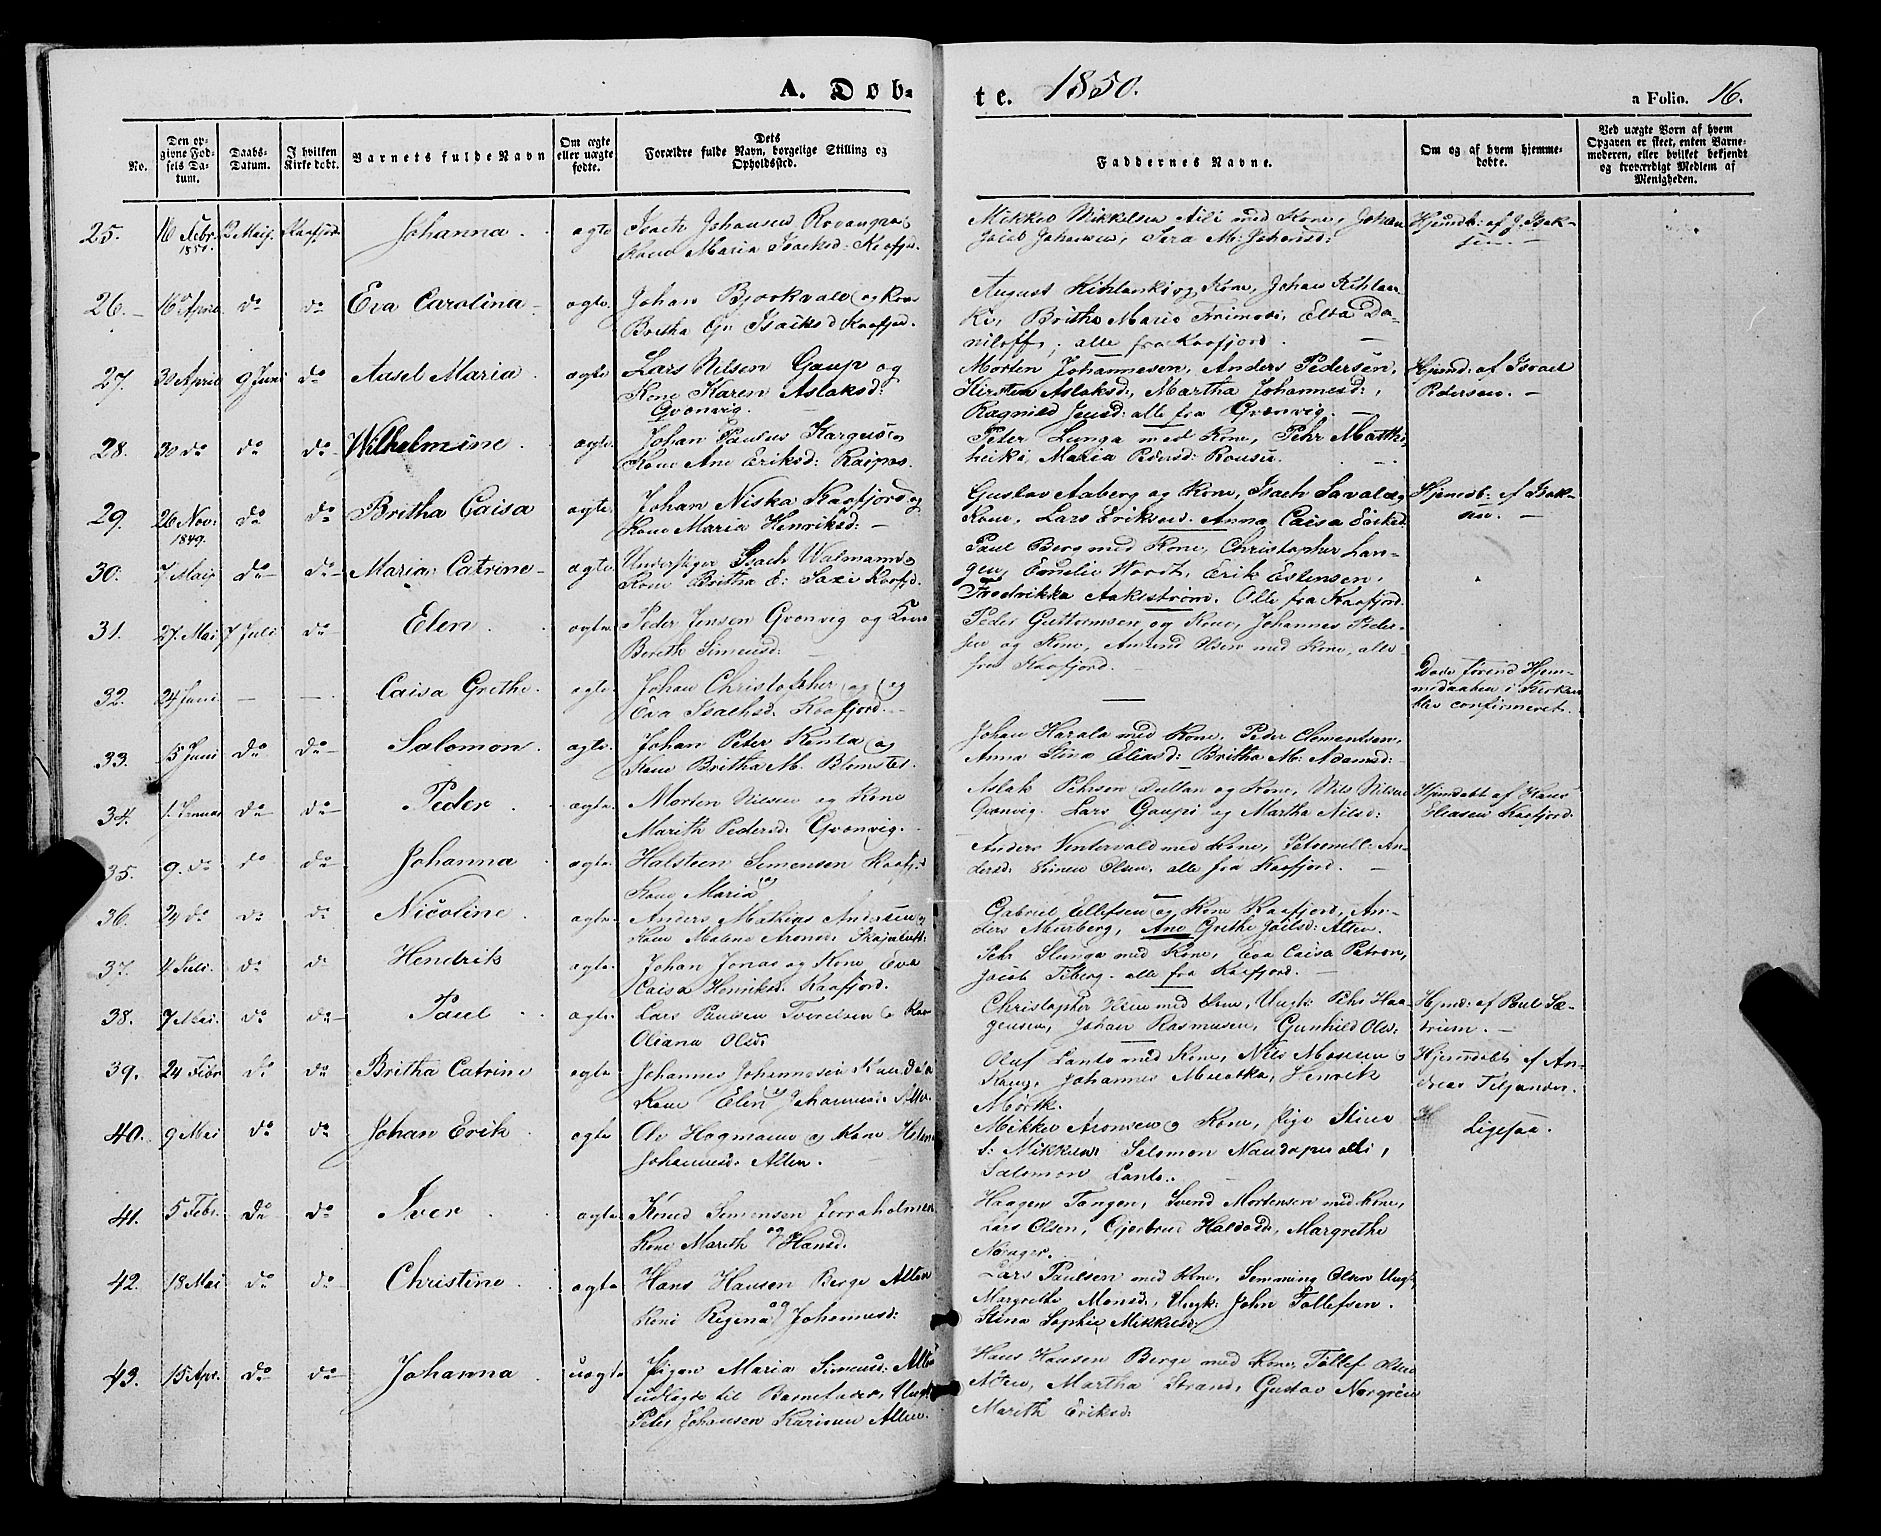 A. Døb-
te. 1850.
a Folio. 16.
No.
Den op-
givne Fød-
sels Da-
tum.
Daabs-
Datum.
I hvilken
Kirke døbt.
Barnets fulde Navn
Om ægte
eller uægte
fødte.
Dets
Forældre fulde Navn, borgelige Stilling og
Opholdssted.
Faddernes Navne.
Om og af hvem hjemme-
døbte.
Ved uægte Børn af hvem
Opgaven er skeet, enten Barne-
moderen, eller hvilket bekjendt
og troværdigt Medlem af
Menigheden.
25. 16 Febr. 1850. Maij. Kaafjord Johanna. ægte Isach Johansen
Kone Maria Isaksd: Kaafjd.
Mikkel Mikkelsen Aili med Kone, Johan
Jacob Johansen, Sara M: Johansd:
Hjemdb: af J. Isak-
sen
26. 16 April do do Eva Carolina ægte Johan Bjørkvald og Kone
Britha Gr Isaksd Kaafjd.
August Kihlanki og Kone, Johan Kihlan-
ki, Britha Maria Frimosi, Elsa Da-
niloff, alle fra Kaafjord.
27. 30 April 9 Juni do Ansel Maria ægte Lars Nilsen Gaup og
Kone Karen Aslaksd:
Qvænvig.
Morten Johannesen, Anders Pedersen,
Kirsten Aslaksd:, Martha Johannesd:,
Ragnild Jensd: alle fra Qvænvig.
Hjemd. af Israel
Pedersen.
28. 30 do do do Wilhelmine ægte Johan Paulus Kargus og
Kone Ane Eriksd: Raipas.
Peter Lunga med Kone, Pehr Matthi
heiki, Maria Pedersd: Rousu.
29. 26 Nov: 1849. do do Britha Caisa ægte Johan Niska Kaafjord og
Kone Maria Henriksd:
Gustav Aaberg og Kone, Isach Savala og
Kone, Lars Eriksen. Anna Caisa
Hjemdb: af Isak-
sen
30. 7 Maij do do Maria Catrine ægte Understiger Isach Walmann og
Kone Britha E: Saxi Kaafjd.
Paul Berg med Kone, Christopher Lan-
gen, Emelie Woodt, Erik Estensen,
Fredrikka Aakerstrøm. Alle fra Kaafjord.
31. 27 Mai 7 Juli do Elen ægte Peder Jensen Qvænvig og Kone
Bereth Simensd:
Peder Guttormsen og Kone, Johannes Peder-
sen og Kone, Amund Olsen med Kone, alle
fra Kaafjord.
32. 24 Juni — — Caisa Grethe. ægte Johan Christopher og
Eva Isachsd. Kaafjord.
Døde førend Hjem-
medaaben i Kirken
blev confirmeret.
33. 5 Juni do do Salomon ægte Johan Peter Kenta og
Kone Britha M. Blomster.
Johan Harala med Kone, Peder Clementsen,
Anna Stina Eliasd: Britha M: Adamsd:
34. do do Peder ægte Morten Nilsen og Kone
Marith Pedersd. Qvænvig.
Aslak Pehrsen og Kone, Nils Nilsen
Qvænvig. Lars Gaupi og Martha Nilsd:
Hjemdøbt af Hans
Eliasen Kaafjord.
35. 9. do do do Johanna ægte Halsteen Simensen Kaafjd
og Kone Maria
Anders Vintervald med Kone, Petronell: An-
dersd: Simen Olsen, alle fra Kaafjord.
36. 24 do do do Nicoline ægte Anders Mathias Andersen og
Kone Malene Aronsd:
Gabriel Ellefsen og Kone Kaafjord, An-
ders Murberg, Ane Grethe Joelsd: Alten.
37. 4 Juli do do Hendrik ægte Johan Jonas og Kone Eva
Caisa Henriksd. Kaafjord.
Pehr Slunga med Kone, Eva Caisa Petron,
Jacob Teberg. alle fra Kaafjord.
38. 7 Mai. do do Paul ægte Lars Paulsen Tverelven og Kone
Oliana Olsd:
Christopher med Kone, Ungk: Pehr Haa-
gensen, Johan Rasmusen, Gunhild Olsd:
Hjmd: af Poul Sæ-
trum.
39. 24 Febr do do Britha Catrine ægte Johannes Johannesen
og Kone Elen Johannesd: Alten.
Oluf Lanto med Kone, Nils
Johannes Muotka, Henrik
Mørtk.
Hjemdøbt af An-
dreas Teljander.
40. 9 Mai do do Johan Erik ægte Ole Hogmann og Kone Helena
Johannesd. Alten.
Mikkel Aronsen og Kone, Pige Stina
S: Mikkelsd: Salomon
Salomon Lanto.
Ligesaa.
41. 5 Febr. do do Iver ægte Knud Simensen Jorraholmen
og Kone Marith Hansd.
Haagen Tangen, Svend Mortensen med Kone,
Lars Olsen, Gjertrud Halvorsd:, Margrethe
42. 18 Mai do do Christine ægte Hans Hansen Berge Alten
og Kone Regina Johannesd:
Lars Paulsen med Kone, Semming Olsen Ungk
Margrethe Monsd:, Ungk: John Tollefsen.
Stina Sophie Mikkelsd:
43. 15 Apr. do do Johanna uægte Pigen Maria Simensd: Alten
udlagt til Barnefader, Ungk:
Peter Johansen Karinen Alten.
Hans Hansen Berge med Kone, Tollef Olsen
Alten, Martha Strand, Gustav
Marith Eriksd: